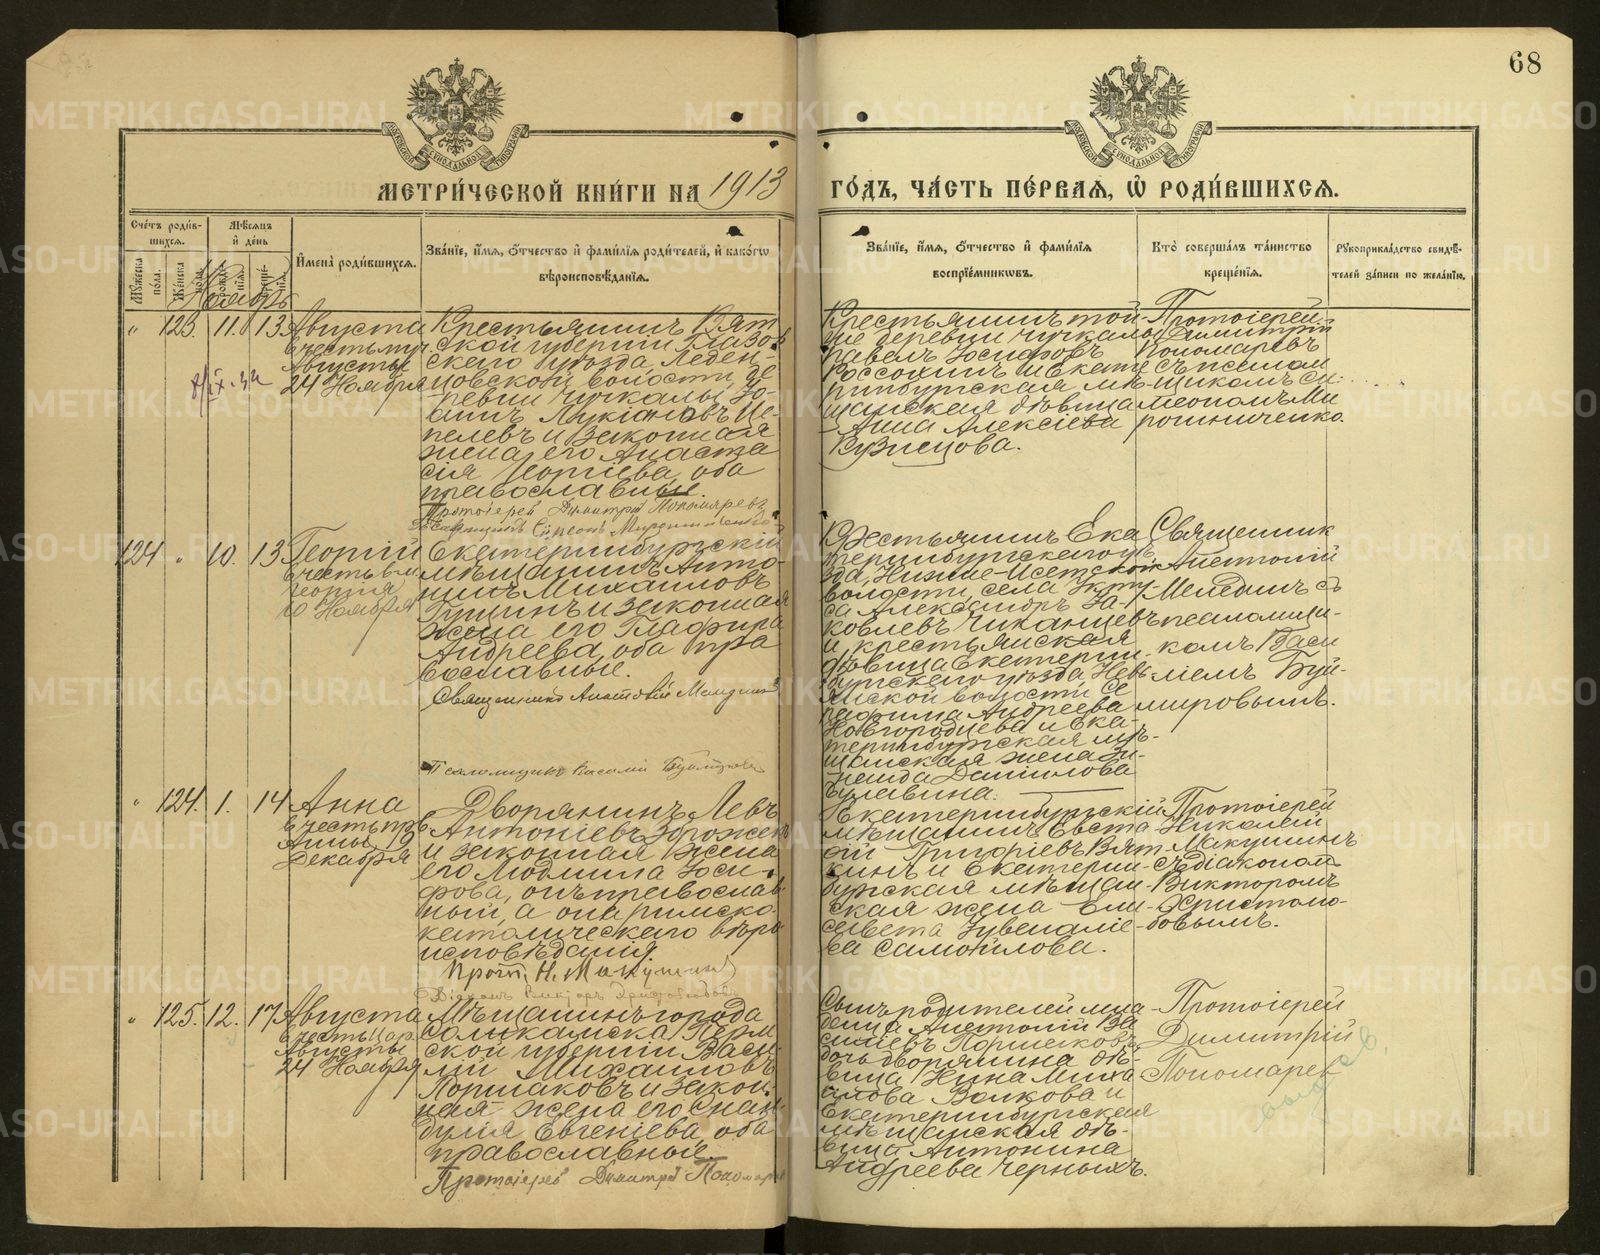 68
МЕТРИ́ЧЕСКОЙ КНИ́ГИ НА 1913 ГО́ДЪ, ЧА́СТЬ ПЕ́РВАЯ, Ѡ҆ РОДИ́ВШИХСЯ.
Сче́тъ роди́вшихся.
Мѣ́сяцъ и҆ де́нь
Мꙋжеска пола.
Же́нска пола.
Ноябрь
И҆мена̀ роди́вшихся.
Зва́нїе, и҆́мя, ѻ҆́тчество и҆ фамі́лїя роди́телей, и҆ како́гѡ
вѣроисповѣ́данїя.
Зва́нїе, и҆́мя, ѻ҆́тчество и҆ фамі́лїя
воспрїе́мникѡвъ.
Кто̀ соверша́лъ та́инство
креще́нїя.
Рꙋкоприкла́дство свидѣ́-
телей за́писи по жела́нїю.
" 123. 11. 13. Августа
в честь муч.
Августы
24 Ноября
Крестьянинъ Вят
ской губернiи Глазов
скаго уѣзда, Леден-
цовской волости, де
ревни Чучкалы, Іо-
аннъ Лукiановъ Це-
пелевъ и законная
жена его Анаста
сiя Георгiева, оба
православные.
Протоiерей Димитрiй Пономаревъ
Крестьянинъ той
же деревни Чучкалы
Павелъ Іосифовъ
Россохинъ и Екате
ринбургская мѣ-
щанская дѣвица
Анна Алексiева
Кузнецова.
Протоiерей
Димитрiй
Пономаревъ
съ псалом
щикомъ Си
меономъ Ми
рошниченко.
124 " 10. 13. Георгiй
в честь в.м.
Георгiя
10 Ноября
Екатеринбургскiй
мѣщанинъ Анто-
нинъ Михаиловъ
Гущинъ и законная
жена его Глафира
Андреева, оба пра
вославные.
Священникъ Анатолiй Мамдинъ
Псаломщикъ Василiй
Крестьянинъ Ека
теринбургскаго уѣ
зда, Нижне-Исетской
волости, села Укту
са Александръ Іа-
ковлевъ Чиканцевъ
и крестьянская
дѣвица Екатерин
бургскаго уѣзда, Невь
янской волости Се
рафима Андреева
Новгородцева и Ека-
теринбургская мѣ-
щанская жена Зи-
наида Данiилова
Булавина.
Священник
Анатолiй
съ
псаломщи-
комъ Васи
лiемъ Буй-
мировымъ.
" 124. 1. 14 Анна
в честь пр.
Анны 10
Декабря
Дворянинъ Левъ
Антонiевъ
и законная жена
его Людмила Іоси-
фова, онъ православ
ный, а она римско-
католическаго вѣро
исповѣданiя.
Прот. Н. Макушинъ
Дiаконъ Викторъ Христолюбовъ
Екатеринбургскiй
мѣщанинъ Евста
фiй Григорiевъ Вят
кинъ и Екатерин
бургская мѣщан-
ская жена Ели-
савета Іувеналiе-
ва Самойлова.
Протоiерей
Николай
Макушинъ
съ дiакономъ
Викторомъ
Христолю-
бовымъ.
" 125. 12. 17 Августа
в честь цар.
Августы
24 Ноября
Мѣщанинъ города
Соликамска Перм
ской губернiи Васи
лiй Михаиловъ
Поршаковъ и закон-
ная жена его Скан
дулiя Евгенiева, оба
православные.
Протоiерей Димитрiй Пономаревъ
Сынъ родителей мла
денца Анатолiй Ва
силiевъ Поршаковъ,
дочь дворянина дѣ-
вица Нина Миха
илова Волкова и
Екатеринбургская
мѣщанская дѣ-
вица Антонина
Андреева Черныхъ.
Протоiерей
Димитрiй
Пономарев
METRIKI.GASO-URAL.RU